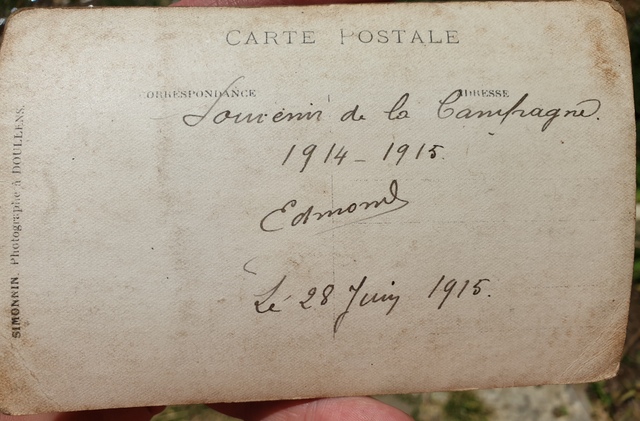 CARTE POSTALE
CORRESPONDANCE
ADRESSE
Souvenir de la Campagne.
1914 - 1915.
Edmond
Le 28 Juin 1915.
SIMONNIN, Photographe à DOULLENS.